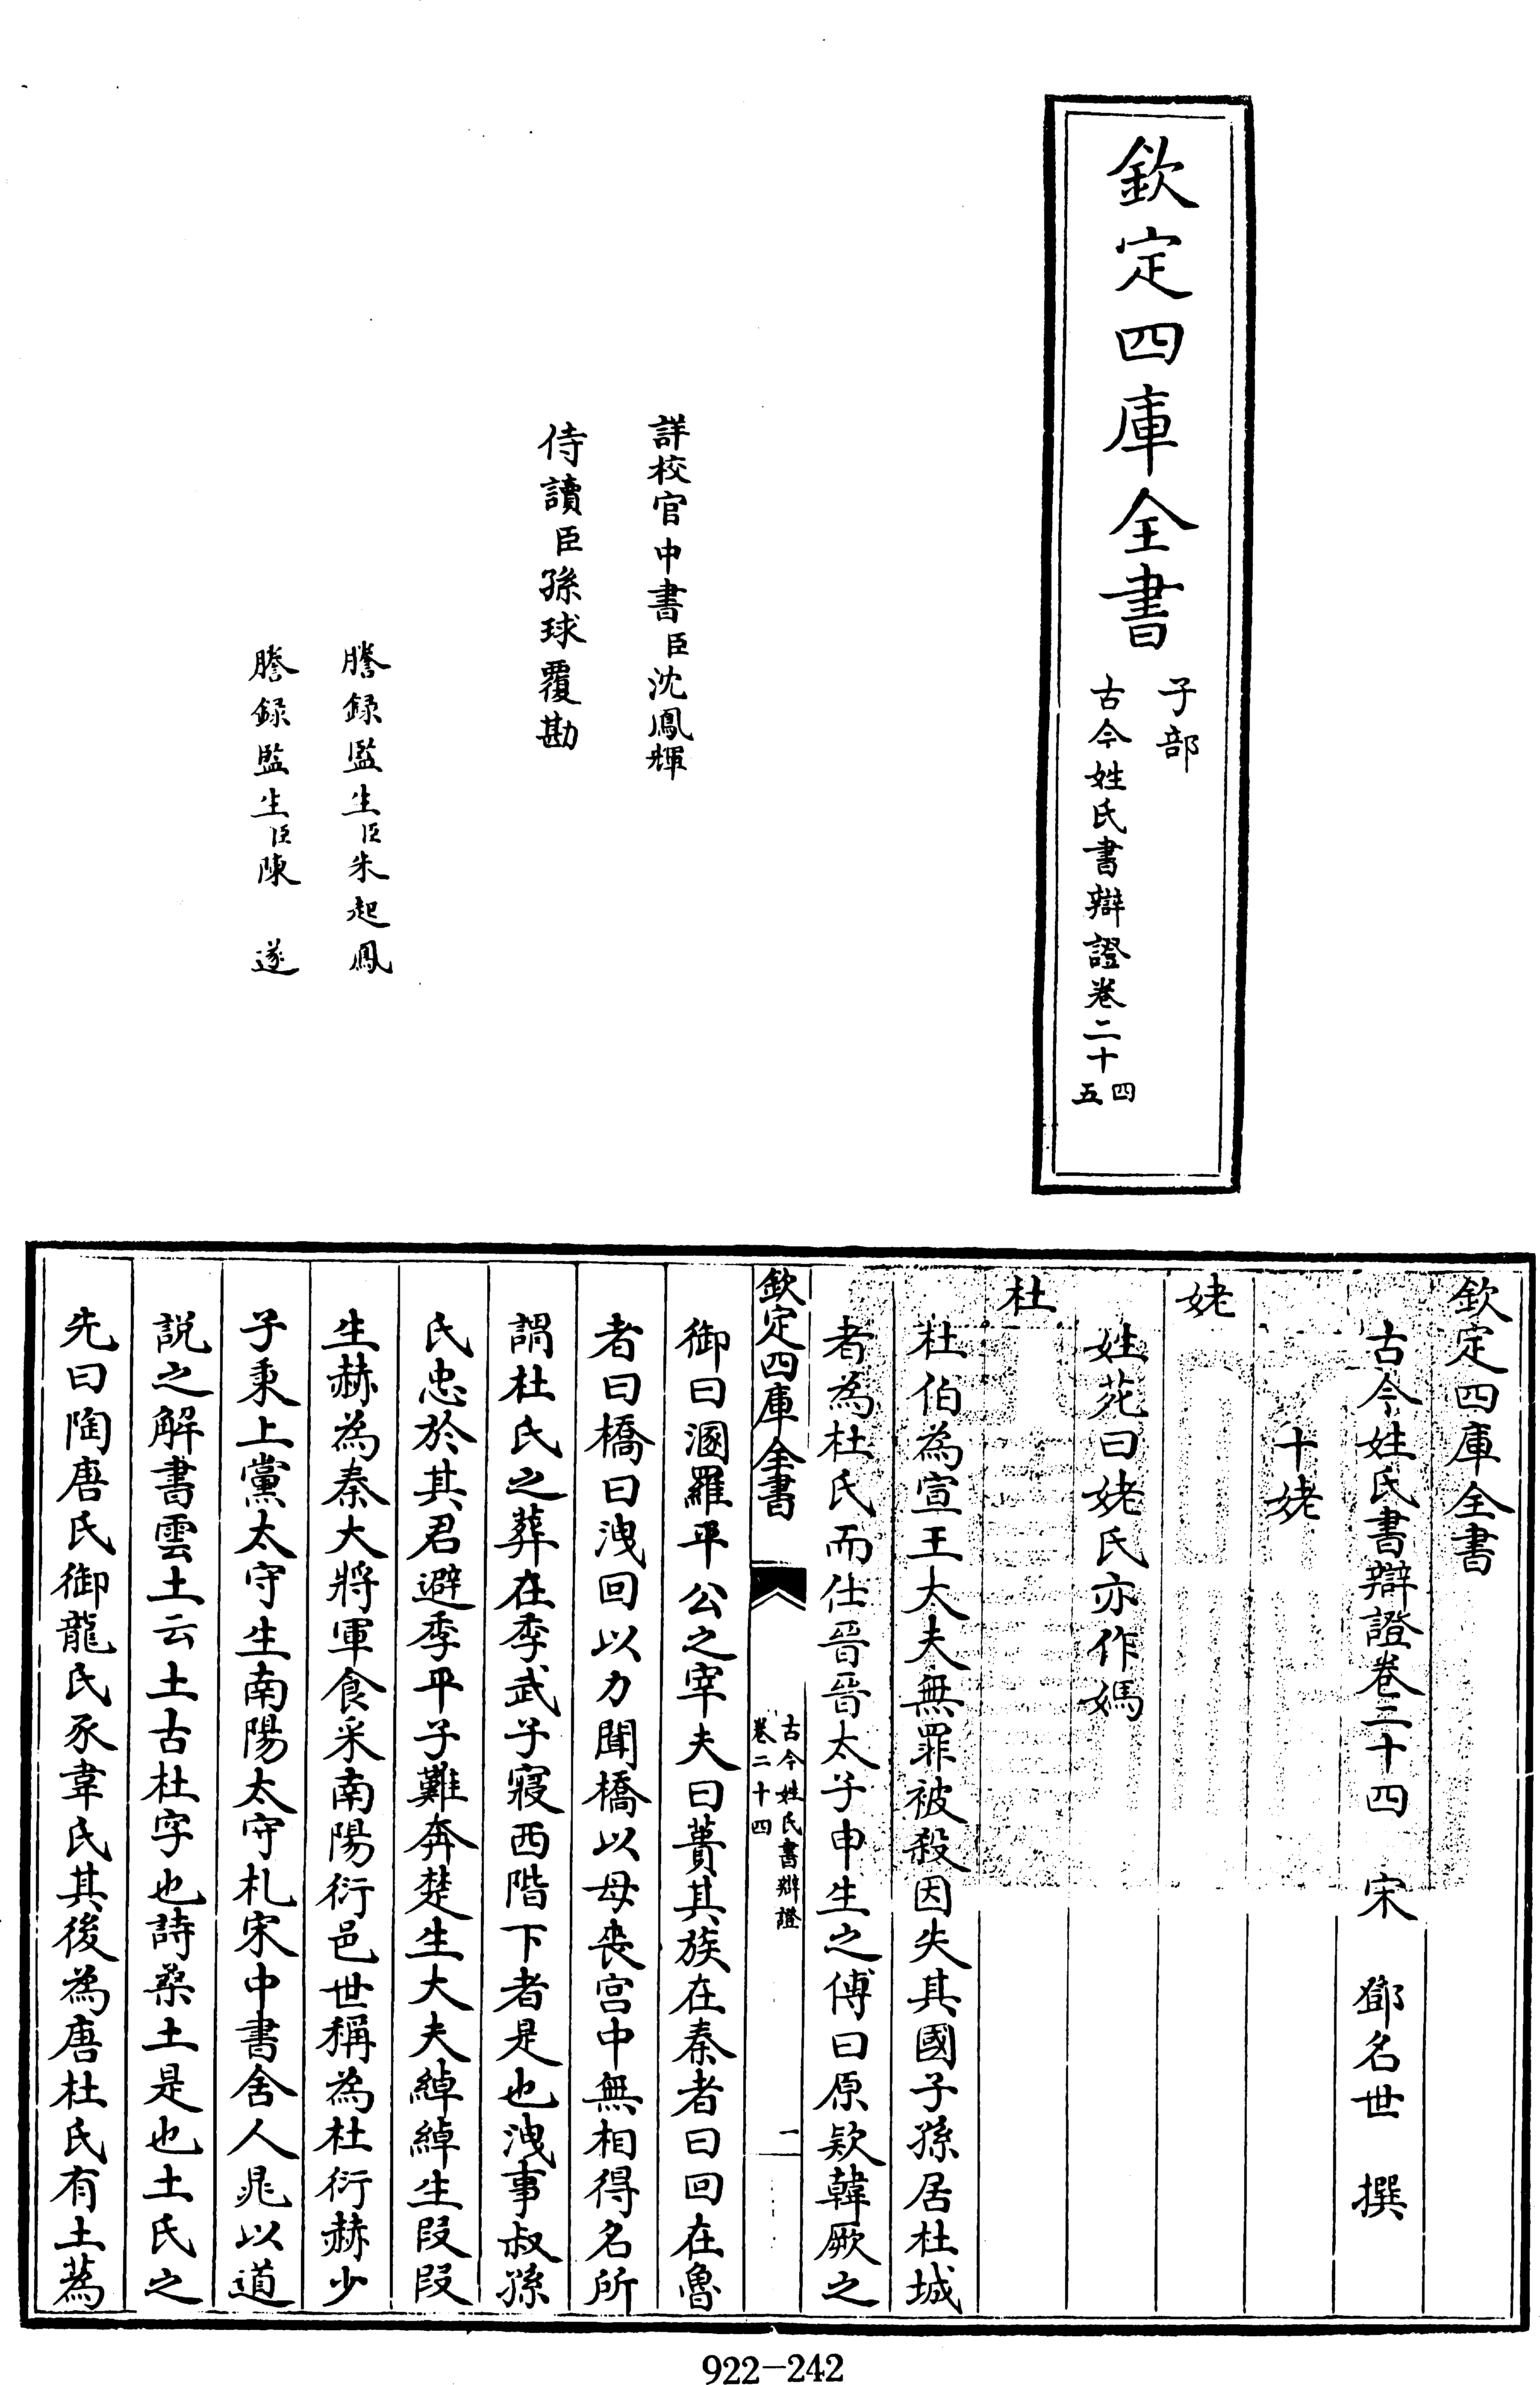 欽定四庫全書
子部
古今姓氏書辯證卷二十四五
詳校官中書臣沈鳳輝
侍讀臣孫球覆勘
謄録監生臣朱起鳳
謄録監生臣陳遂
欽定四庫全書
古今姓氏書辯證卷二十四 宋 鄧名世 撰
十姥
姥
姓苑曰姥氏亦作媽
杜
杜伯為宣王大夫無罪被殺因失其國子孫居杜城
者為杜氏而仕晉晉太子申生之傅曰原欵韓厥之
欽定四庫全書
古今姓氏書辯證
卷二十四
一
御曰溷羅平公之宰夫曰蕢其族在秦者曰回在魯
者曰橋曰洩回以力聞橋以母喪宫中無相得名所
謂杜氏之葬在季武子寢西階下者是也洩事叔孫
氏忠於其君避季平子難奔楚生大夫綽綽生段段
生赫為秦大將軍食采南陽衍邑世稱為杜衍赫少
子秉上黨太守生南陽太守札宋中書舍人晁以道
説之解書雲土云土古杜字也詩桑土是也土氏之
先曰陶唐氏御龍氏豕韋氏其後為唐杜氏有土蒍
922-242